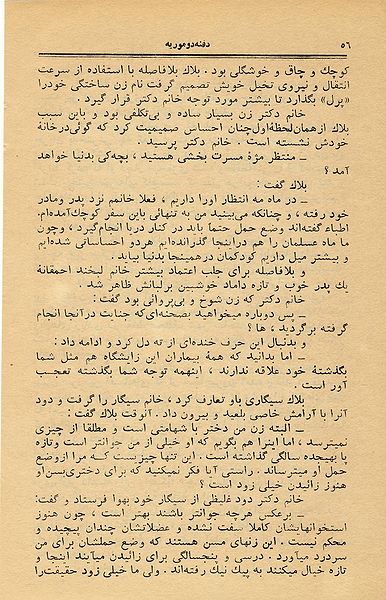 ۵۶
دفنه دوموریه
کوچك و چاق و خوشگلی بود. بلاك بلافاصله با استفاده از سرعت
انتقال و نیروی تخیل خویش تصمیم گرفت نام زن ساختگی خودرا
«پرل» بگذارد تا بیشتر مورد توجه خانم دکتر قرار گیرد.
خانم دکتر زن بسیار ساده و بی‌تکلفی بود و باین سبب
بلاك ازهمان‌لحظهٔ اول چنان احساس صمیمیت کرد که گوئی‌درخانهٔ
خودش نشسته است. خانم دکتر پرسید.
ـ منتظر مژهٔ مسرت بخشی هستید، بچه‌کی بدنیا خواهد
آمد؟
بلاك گفت:
ـ در ماه مه انتظار اورا داریم، فعلا خانمم نزد پدر ومادر
خود رفته، و چنانکه می‌بینید من به تنهائی باین سفر کوچك‌آمده‌ام.
اطباء گفته‌اند وضع حمل حتماً باید در کنار دریا انجام‌گیرد، وچون
ما ماه عسلمان را هم دراینجا گذرانده‌ایم هردو احساساتی شده‌ایم
و بیشتر میل داریم کودکمان درهمینجا بدنیا بیاید.
و بلافاصله برای جلب اعتماد بیشتر خانم لبخند احمقانهٔ
یك پدر خوب و تازه داماد خوشبین برلبانش ظاهر شد.
خانم دکتر که زن شوخ و بی‌پروائی بود گفت:
ـ پس دوباره میخواهید بصحنه‌ای‌که جنایت درآنجا انجام
گرفته برگردید، ها؟
و بدنبال این حرف خنده‌ای از ته دل کرد و ادامه داد:
ـ اما بدانید که همهٔ بیماران این زایشگاه هم مثل شما
بگذشتهٔ خود علاقه ندارند، اینهمه توجه شما بگذشته تعجب
آور است.
بلاك سیگاری باو تعارف کرد، خانم سیگار را گرفت و دود
آنرا با آرامش خاصی بلعید و بیرون داد. آنوقت بلاك گفت:
ـ البته زن من دختر با شهامتی است و مطلقا از چیزی
نمیترسد، اما اینرا هم بگویم که او خیلی از من جوانتر است وتازه
با بهیجده سالگی گذاشته است. این تنها چیزیست کـه مرا ازوضع
حمل او میترساند. راستی آیا فکر نمیکنید که برای دختری‌بسن‌او
هنوز زائیدن خیلی زود است؟
خانم دکتر دود غلیظی از سیگار خود بهوا فرستاد و گفت:
ـ برعکس هرچه جوانتر باشند بهتر است، چون هنوز
استخوانهایشان کاملا سفت نشده و عضلاتشان چندان پیچیده و
محکم نیست. این زنهای مسن هستند که وضع حملشان برای من
سردرد میآورد. درسی و پنجسالگی برای زائیدن میآیند اینجا و
تازه خیال میکنند به پیك نیك رفته‌اند. ولی ما خیلی زود حقیقت‌را